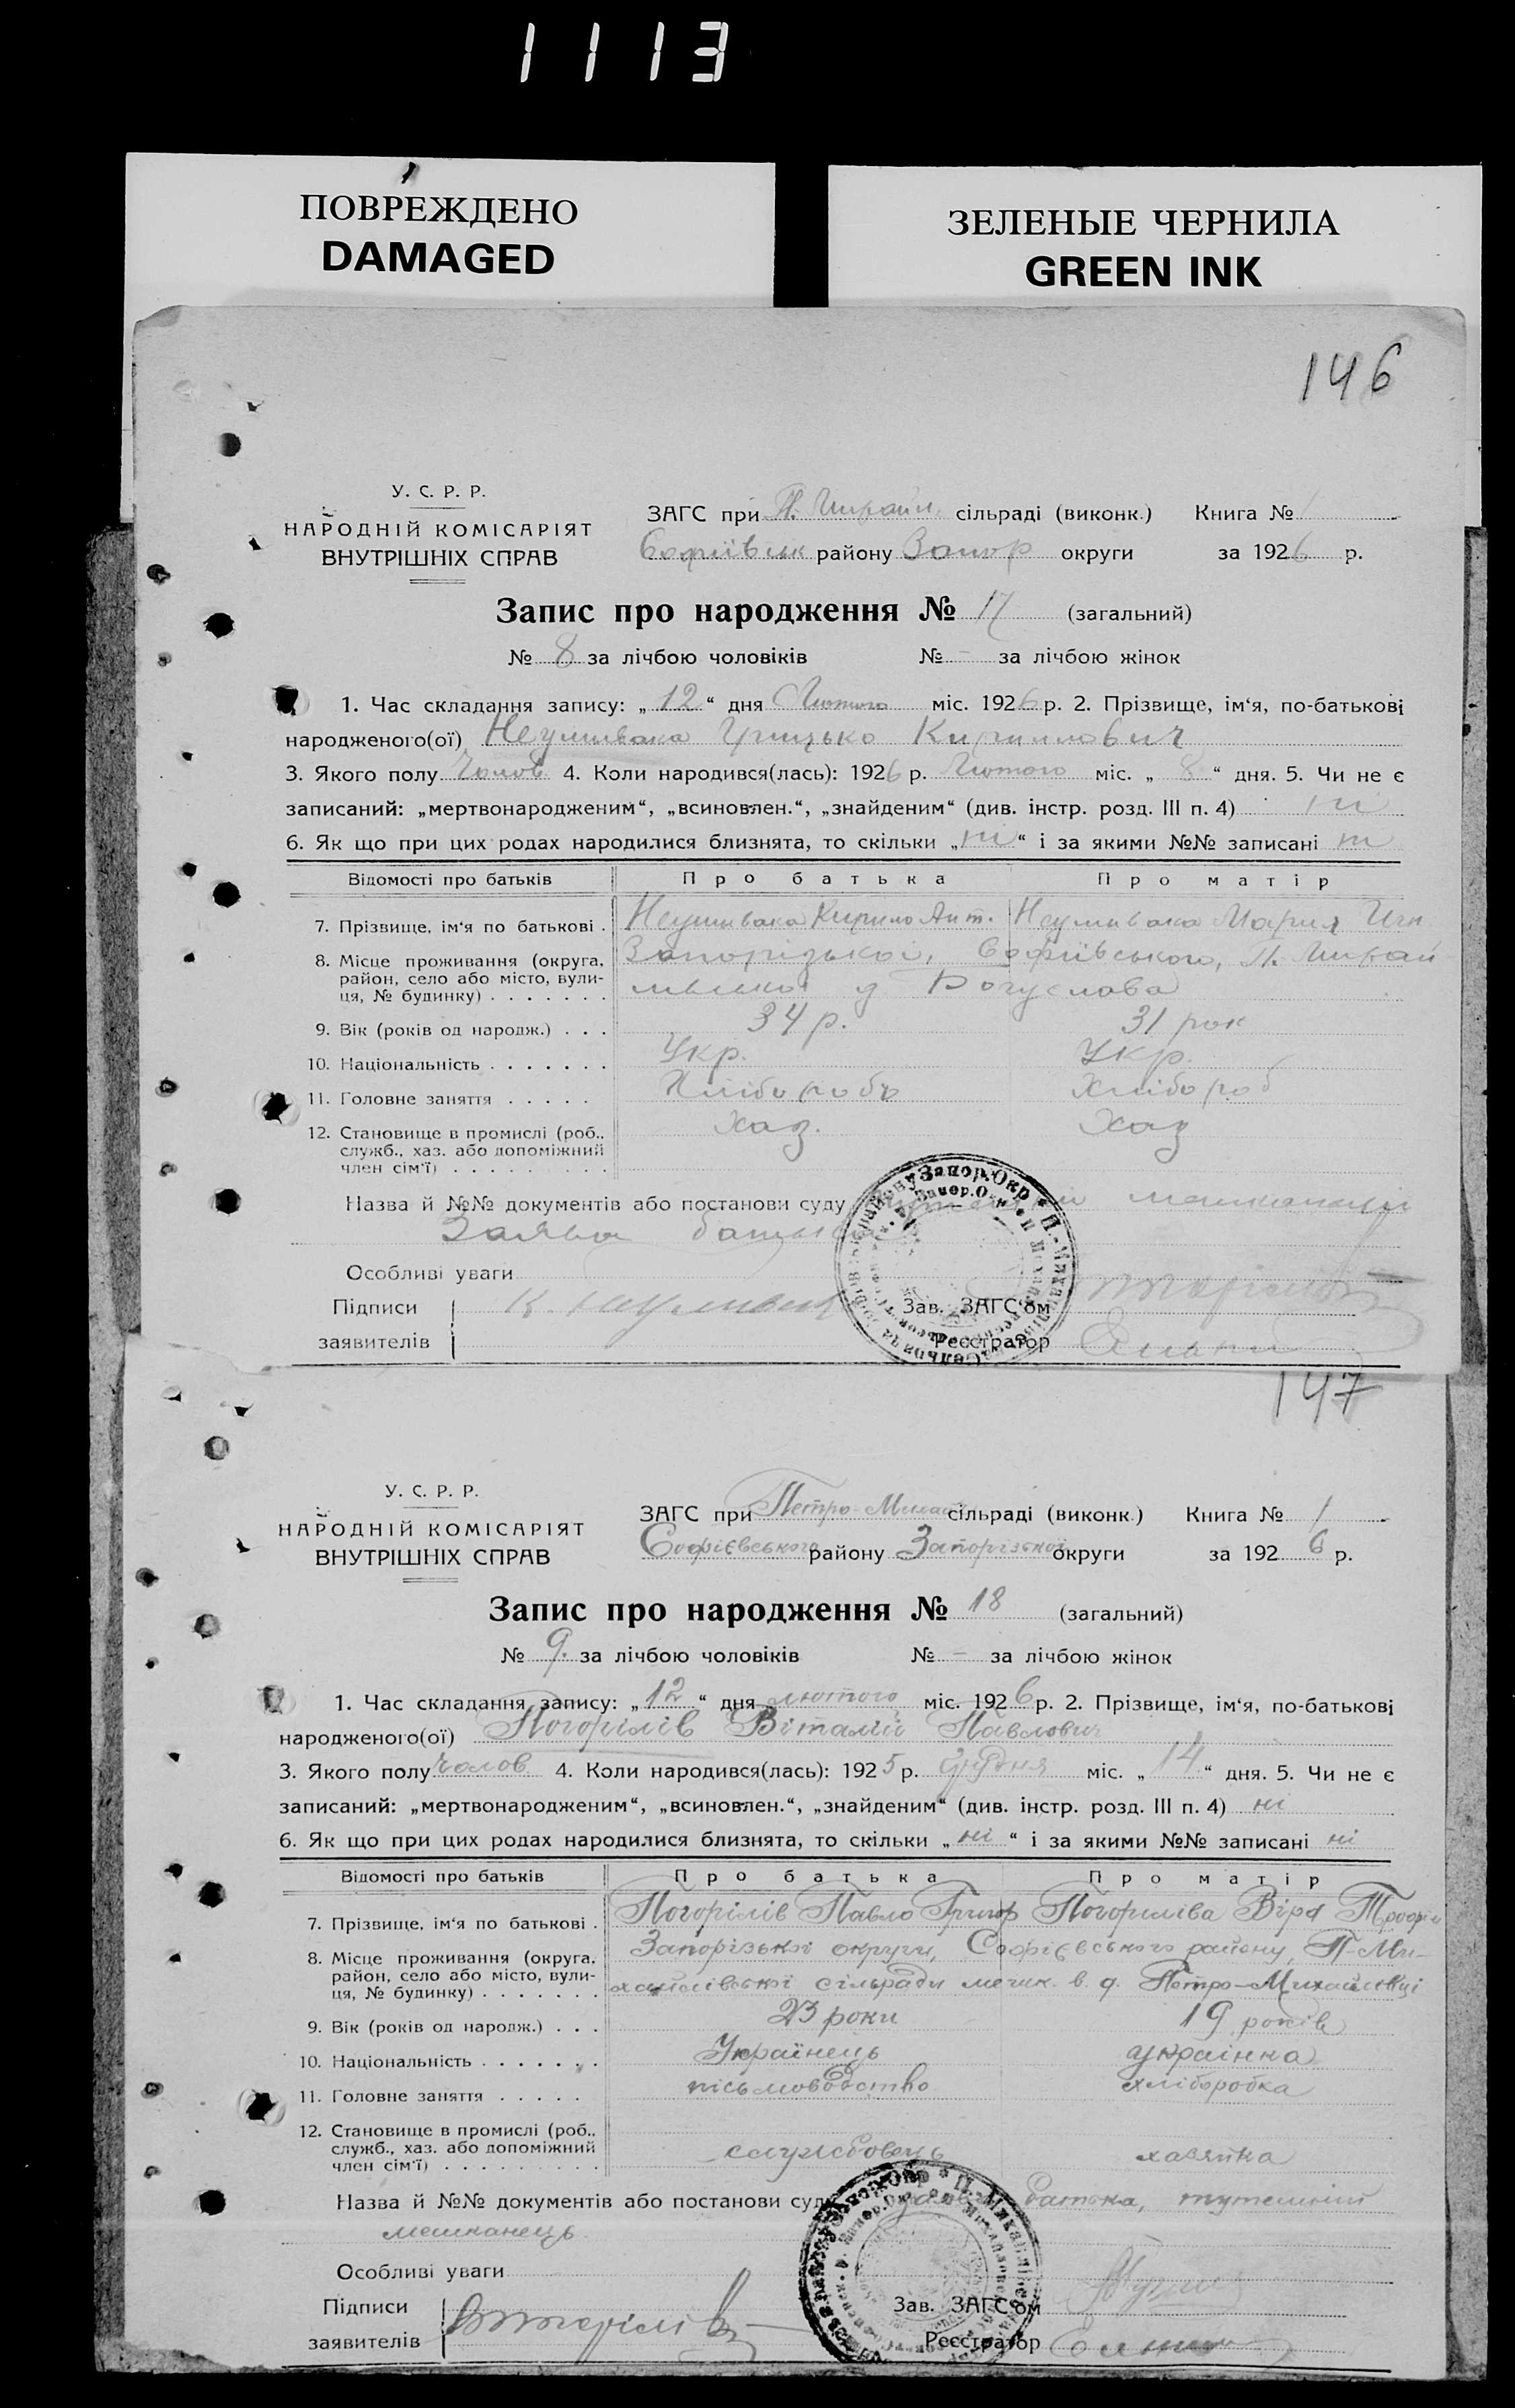 1113
ПОВРЕЖДЕНО
DAMAGED
ЗЕЛЕНЫЕ ЧЕРНИЛА
GREEN INK
146
У. С. Р. Р.
НАРОДНІЙ КОМІСАРІЯТ
ВНУТРІШНІХ СПРАВ
ЗАГС при П. Михайл. сільраді (виконк.) Книга № 1
Софіївськ району Запор округи за 1926 р.
Запис про народження № 17 (загальний)
№ 8 за лічбою чоловіків № - за лічбою жінок
1. Час складання запису: „ 12 “ дня Лютого міс. 1926 р. 2. Прізвище, ім‘я, по-батькові
народженого(ої) Неумивака Грицько Кирилович
3. Якого полу Чолов 4. Коли народився(лась): 1926 р. Лютого міс. „ 8 “ дня. 5. Чи не є
записаний: „мертвонародженим“, „всиновлен.“, „знайденим“ (див. інстр. розд. III п. 4) ні
6. Як що при цих родах народилися близнята, то скільки „ ні “ і за якими №№ записані ні
Відомості про батьків Про батька Про матір
7. Прізвище, ім‘я по батькові . Неумивака Кирило Ант. Неумивака Мария Игн
8. Місце проживання (округа, район, село або місто, вули-ця, № будинку) . . . . . . . Запорізької, Софіївського, П. Михай
д Богуслава
9. Вік (років од народж.) . . . 34 р. 31 рок
10. Національність . . . . . . . Укр. Укр.
11. Головне заняття . . . . . Хліборобъ Хлібороб
12. Становище в промислі (роб., служб., хаз. або допоміжний член сім‘ї) . . . . . . . . . Хаз. Хаз
Назва й №№ документів або постанови суду
Заява батька
Особливі уваги
Підписи
заявителів
Зав. ЗАГС‘ом
Реєстратор
147
У. С. Р. Р.
НАРОДНІЙ КОМІСАРІЯТ
ВНУТРІШНІХ СПРАВ
ЗАГС при Петро-Михайл сільраді (виконк.) Книга № 1
Софієвського району Запорізької округи за 1926 р.
Запис про народження № 18 (загальний)
№ 9. за лічбою чоловіків № - за лічбою жінок
1. Час складання запису: „ 12 “ дня лютого міс. 1926 р. 2. Прізвище, ім‘я, по-батькові
народженого(ої) Погорілів Віталій Павлович
3. Якого полу чолов 4. Коли народився(лась): 1925 р. грудня міс. „ 14 “ дня. 5. Чи не є
записаний: „мертвонародженим“, „всиновлен.“, „знайденим“ (див. інстр. розд. III п. 4) ні
6. Як що при цих родах народилися близнята, то скільки „ ні “ і за якими №№ записані ні
Відомості про батьків Про батька Про матір
7. Прізвище, ім‘я по батькові . Погорілів Павло Григор Погориліва Віра Трофім
8. Місце проживання (округа, район, село або місто, вули-ця, № будинку) . . . . . . . Запорізької округи, Софієвського району, П-Ми-
хайлівської сільради мешк. в д. Петро-Михайлівці
9. Вік (років од народж.) . . . 23 роки 19 років
10. Національність . . . . . . . Українець українка
11. Головне заняття . . . . . письмоводство хліборобка
12. Становище в промислі (роб., служб., хаз. або допоміжний член сім‘ї) . . . . . . . . . службовець хазяйка
Назва й №№ документів або постанови суду батька, тутешній
мешканець
Особливі уваги
Підписи
заявителів
Зав. ЗАГС‘ом
Реєстратор